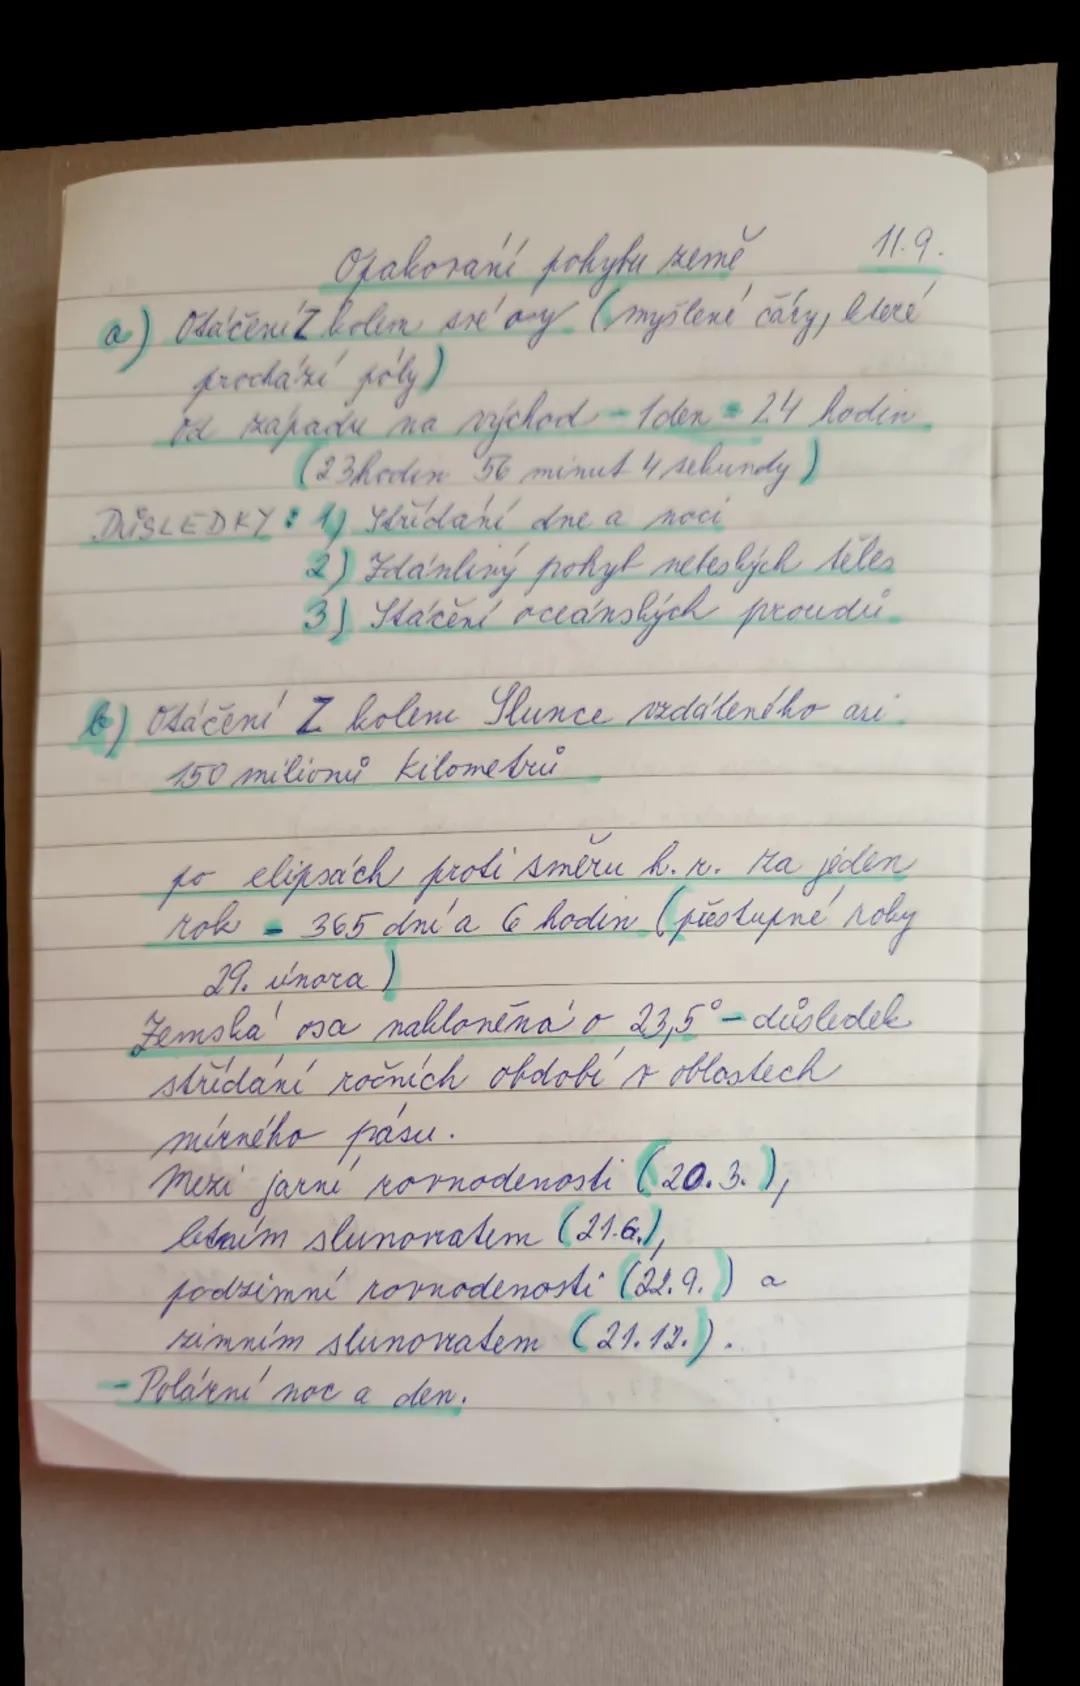 Opakování pohybu země 11.9.
a) Otáčení Z kolem své osy (myšlené čáry, které
prochází póly)
od západu na východ - 1 den = 24 hodin
(23 hodin 56 minut 4 sekundy)
DŮSLEDKY: 1) Střídání dne a noci
2) Zdánlivý pohyb nebeských těles
3) Stáčení oceánských proudů
b) Otáčení Z kolem Slunce vzdáleného asi
150 milionů kilometrů
po elipsách proti směru h. r. za jeden
rok - 365 dní a 6 hodin (přestupné roky
29. února)
Zemská osa nakloněná o 23,5° - důsledek
střídání ročních období v oblastech
mírného pásu.
Mezi jarní rovnodenosti (20.3.),
letním slunovratem (21.6.),
podzimní rovnodenosti (22.9.) a
zimním slunovratem (21.12.).
- Polární noc a den.